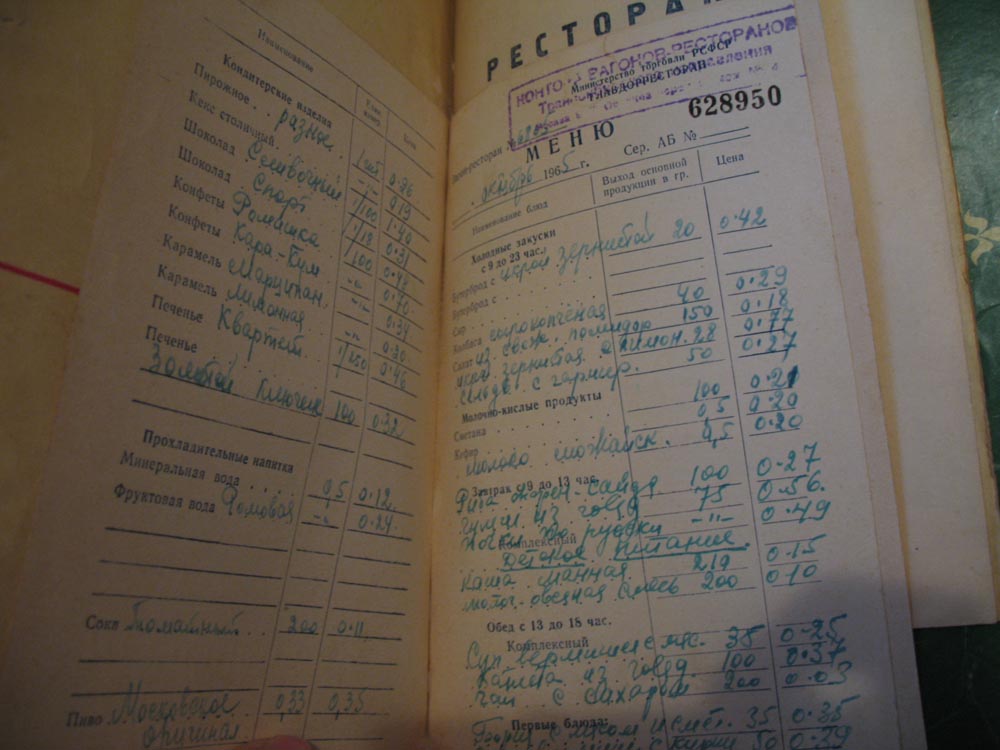 Наименование
Цена
Кондитерские изделия
Пирожное . разное . 1 шт 0·26
Кекс столичный . -"- 0·19
Шоколад Сливочный 1/100 1·40
Шоколад Спорт 1/18 0·31
Конфеты Ромашка 1/100 0·48
Конфеты Кара-Кум -"- 0·70
Карамель Марципан 0·34
Карамель Лимонная -"- 0·30
Печенье Квартет 0·46
Печенье
Золотой ключик 100 0·32
Прохладительные напитки
Минеральная вода . . . 0,5 0·12
Фруктовая вода Фомовая -"- 0·24
Соки Томатный 200 0·11
Пиво Московское 0,33 0,35
оригинал.
РЕСТОРАН
КОНТОРА ВАГОНОВ-РЕСТОРАНОВ
Министерство торговли РСФСР
ГЛАВДОРРЕСТОРАН
Вагон-ресторан №
628950
МЕНЮ
Сер. АБ №
октябрь 1965 г.
Наименование блюд
Выход основной продукции в гр.
Цена
Холодные закуски
с 9 до 23 час.
Бутерброд с икрой зернистой 20 0·42
Бутерброд с . . .
Сыр
Колбаса сырокопчёная 40 0·29
Салат из свеж. помидор 150 0·18
Икра зернистая с лимон. 28 0·77
Сельдь с гарнир. 50 0·27
Молочно-кислые продукты
Сметана 100 0·21
Кефир 0,5 0·20
Молоко можайск. 0,5 0·20
Завтрак с 9 до 13 час.
100 0·27
Гуляш из говяд 75 0·56
-"- 0·49
Комплексный
Детское питание.
Каша манная 219 0·15
Молоч.-овсяная смесь 200 0·10
Обед с 13 до 18 час.
Комплексный
Суп вермишел с мяс. 35 0·25
Котлета из говяд. 100 0·37
Чай с сахаром 200 0·03
Первые блюда:
Борщ с мясом и смет. 35 0·35
50 0·29